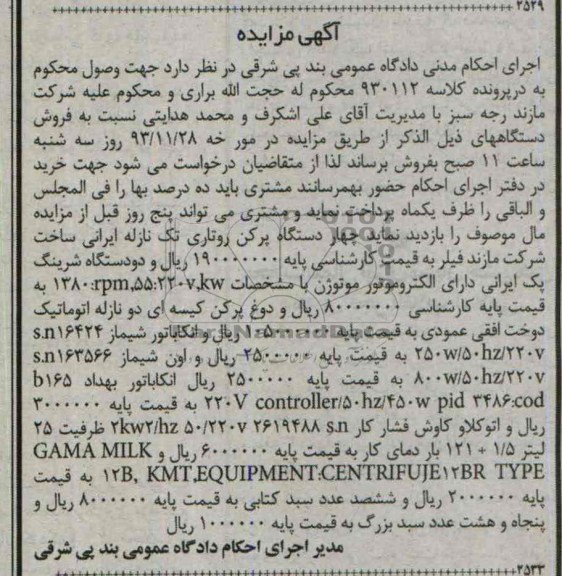 ۲۵۲۹
آگهی مزایده
اجرای احکام مدنی دادگاه عمومی بند پی شرقی در نظر دارد جهت وصول محکوم
به درپرونده کلاسه ۹۳۰۱۱۲ محکوم له حجت الله براری و محکوم علیه شرکت
مازند رجه سبز با مدیریت آقای علی اشکرف و محمد هدایتی نسبت به فروش
دستگاههای ذیل الذکر از طریق مزایده در مور خه ۹۳/۱۱/۲۸ روز سه شنبه
ساعت ۱۱ صبح بفروش برساند لذا از متقاضیان درخواست می شود جهت خرید
در دفتر اجرای احکام حضور بهمرسانند مشتری باید ده درصد بها را فی المجلس
و الباقی را ظرف یکماه پرداخت نماید و مشتری می تواند پنج روز قبل از مزایده
مال موصوف را بازدید نماید. چهار دستگاه پرکن روتاری تک نازله ایرانی ساخت
شرکت مازند فیلر به قیمت کارشناسی پایه ۱۹۰۰۰۰۰۰۰ ریال و دودستگاه شرینگ
پک ایرانی دارای الکتروموتور موتوژن با مشخصات ۱۳۸۰:rpm,۵۵:۲۲۰v,kw به
قیمت پایه کارشناسی ۸۰۰۰۰۰۰۰ ریال و دوغ پرکن کیسه ای دو نازله اتوماتیک
دوخت افقی عمودی به قیمت پایه ریال و انکاباتور شیماز s.n۱۶۴۲۴
۲۵۰w/۵۰hz/۲۲۰v به قیمت پایه ۲۵۰۰۰۰۰ ریال و اون شیماز s.n۱۶۳۵۶۶
۸۰۰w/۵۰hz/۲۲۰v به قیمت پایه ۲۵۰۰۰۰۰ ریال انکاباتور بهداد b۱۶۵
۲۲۰V controller/۵۰hz/۴۵۰w pid ۳۴۸۶:cod به قیمت پایه ۳۰۰۰۰۰۰
ریال و اتوکلاو کاوش فشار کار ۲kw۲/hz ۵۰/۲۲۰v ۲۶۱۹۴۸۸ s.n ظرفیت ۲۵
لیتر ۱/۵ + ۱۲۱ بار دمای کار به قیمت پایه ۶۰۰۰۰۰۰ ریال و GAMA MILK
۱۲B, KMT,EQUIPMENT:CENTRIFUJE۱۲BR TYPE به قیمت
پایه ۲۰۰۰۰۰۰ ریال و ششصد عدد سبد کتابی به قیمت پایه ۸۰۰۰۰۰۰ ریال و
پنجاه و هشت عدد سبد بزرگ به قیمت پایه ۱۰۰۰۰۰۰ ریال
مدیر اجرای احکام دادگاه عمومی بند پی شرقی
۲۵۳۳